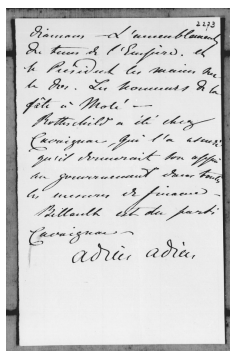 2273
diamans - L'ameublement
du tems de l'Empire. et
le Président les mains sur
le dos. Les honneurs de la
fête à Molé -
Rothschild a été chez
Cavaignac qui l'a assuré
qu'il donnerait son appui
au gouvernement dans toutes
les mesures de finance -
Billault est du parti
Cavaignac -
adieu adieu